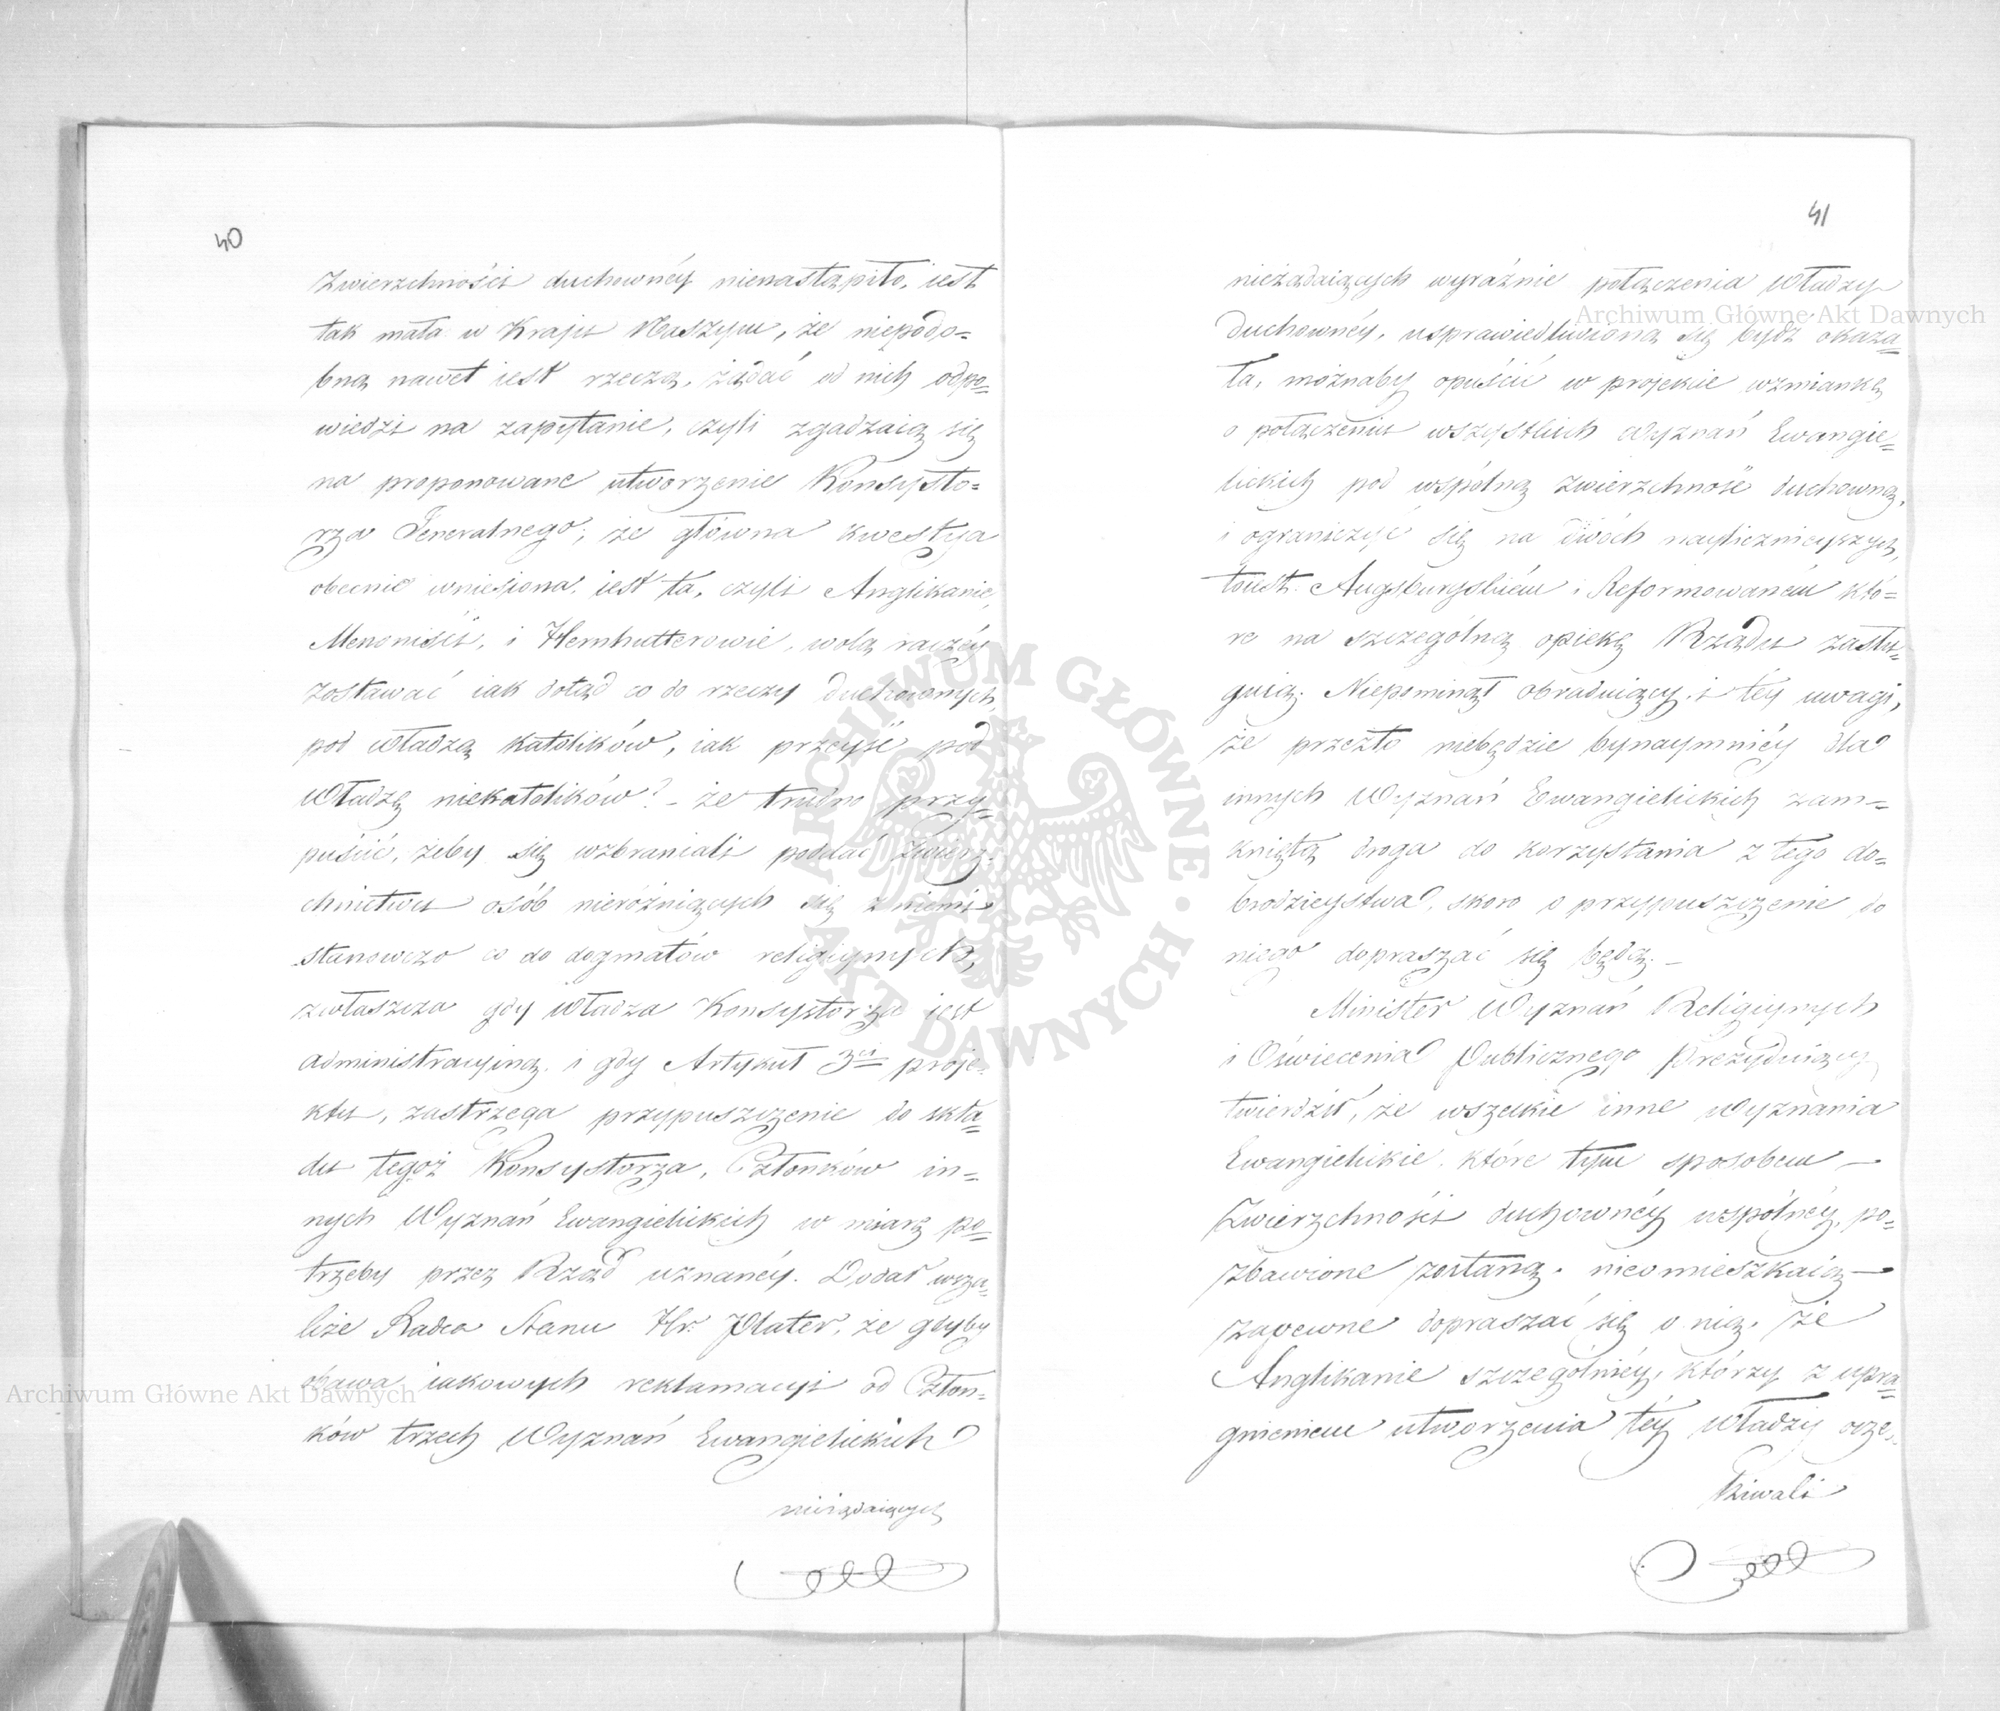 40
Zwierzchności duchownéy nienastąpiło, iest
tak mała w Kraju Naszym, że niepodo=
bną nawet iest rzeczą, żądać od nich odpo=
wiedzi na zapytanie, czyli zgadzaią się
na proponowane utworzenie Konsysto=
rza Jeneralnego; że główna kwestya
obecnie wniesiona, iest ta, czyli Anglikanie,
Menoniści, i Hernhutterowie, wolą raczéy
zostawać iak dotąd co do rzeczy duchownych,
pod władzą Katolików, iak przeyść pod
Władzę niekatolików? – że trudno przy=
puścić, żeby się wzbraniali poddać zwierz=
chnictwu osób nieróżniących się z niemi
stanowczo co do dogmatów religiynych,
zwłaszcza gdy Władza Konsystorza iest
administracyiną, i gdy Artykuł 3ci proje=
ktu, zastrzega przypuszczenie do skła=
du tegoż Konsystorza, Członków in=
nych Wyznań Ewangielickich w miarę po=
trzeby przez Rząd uznanéy. Dodał wsza=
kże Radca Stanu Hr. Plater, że gdyby
obawa iakowych reklamacyi od Człon=
ków trzech Wyznań Ewangielickich
nieżądaiących
41
nieżądaiących wyraźnie połączenia Władzy
duchownéy, usprawiedliwioną się bydź okaza=
ła, możnaby opuścić w projekcie wzmiankę
o połączeniu wszystkich Wyznań Ewangie=
lickich pod wspólną zwierzchność duchowną,
i ograniczyć się na dwóch naylicznieyszych,
toiest: Augsburgskiém i Reformowaném któ=
re na szczególną opiekę Rządu zasłu=
guią. Niepominął obraduiący i téy uwagi,
że przezto niebędzie bynaymniéy dla
innych Wyznań Ewangielickich zam=
kniętą droga do korzystania z tego do=
brodzieystwa, skoro o przypuszczenie do
niego dopraszać się będą. –
Minister Wyznań Religiynych
i Oświecenia Publicznego Prezyduiący
twierdził, że wszelkie inne Wyznania
Ewangielickie, które tym sposobem –
Zwierzchności duchownéy wspólnéy, po=
zbawione zostaną, nieomieszkaią –
zapewne dopraszać się o nią, że
Anglikanie szczególniéy, którzy z upra=
gnieniem utworzenia téy Władzy ocze=
kiwali
Archiwum Główne Akt Dawnych
Archiwum Główne Akt Dawnych
ARCHIWUM GŁÓWNE · AKT DAWNYCH ·